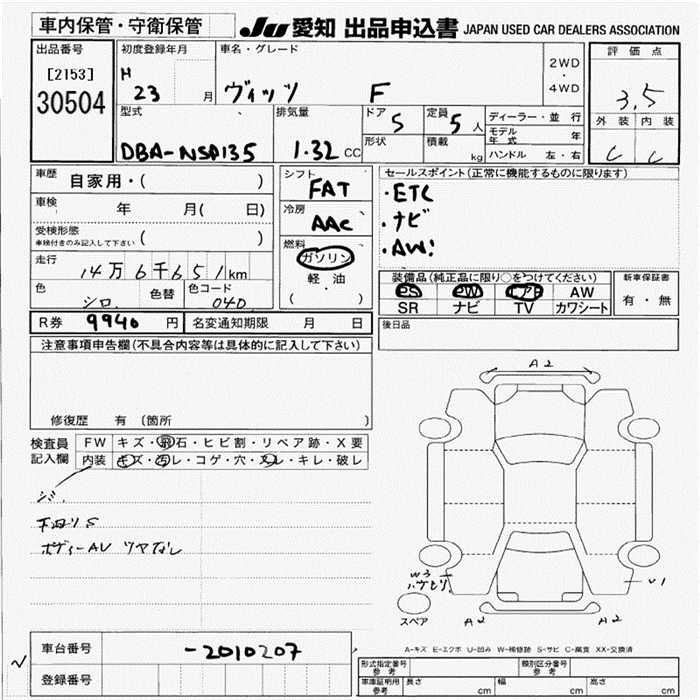 車内保管・守衛保管
JU 愛知 出品申込書 JAPAN USED CAR DEALERS ASSOCIATION
出品番号
[2153]
30504
初度登録年月
H 23 月
車名・グレード
ヴィッツ F
2WD
・
4WD
評価点
3.5
外装 内装
C C
型式
DBA-NSP135
排気量
1.32 CC
ドア 5
定員 5 人
形状
積載 kg
ディーラー・並行
モデル年式 年
ハンドル 左・右
車歴 自家用・( )
車検 年 月( 日)
受検形態
車検付きのみ記入して下さい ( )
走行
14万6千651km
色 シロ
色替
色コード 040
シフト
FAT
冷房
AAC
燃料
ガソリン
軽油
( )
セールスポイント(正常に機能するものに限ります)
・ETC
・ナビ
・AW!
装備品(純正品に限り○をつけてください)
PS PW エアB AW
SR ナビ TV カワシート
新車保証書
有・無
R券 9940 円
名変通知期限 月 日
後日品
注意事項申告欄(不具合内容等は具体的に記入して下さい)
修復歴 有 〔箇所 〕
検査員記入欄
FW キズ・飛石・ヒビ割・リペア跡・X要
内装 キズ・汚レ・コゲ・穴・スレ・キレ・破レ
シミ
下回りS
ボディーAU ツヤなし
A2
W3
ハゲヒリ
U1
スペア
A2
A2
A-キズ E-エクボ U-凹み W-補修跡 S-サビ C-腐食 XX-交換済
車台番号
-2010207
登録番号
形式指定番号
参考
類別区分番号
参考
車庫証明用
参考
長さ cm
幅 cm
高さ cm